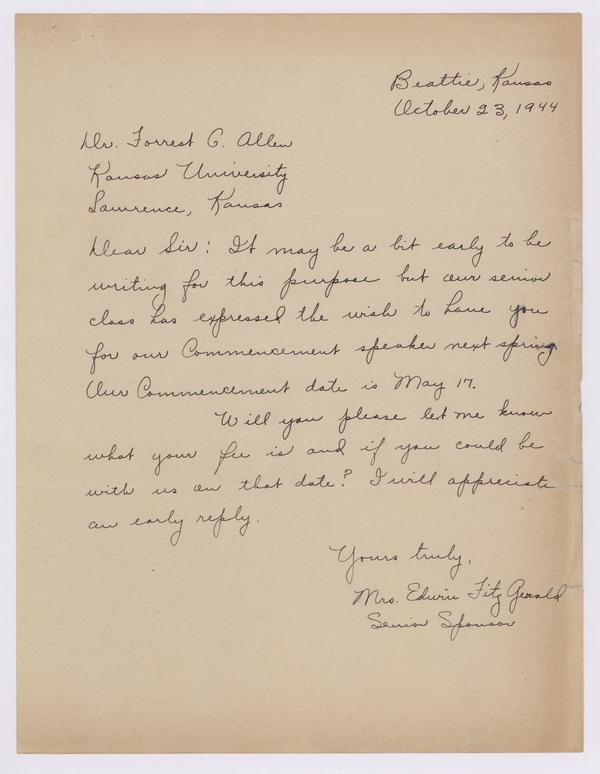 Beattie, Kansas
October 23, 1944
Dr. Forrest C. Allen
Kansas University
Lawrence, Kansas
Dear Sir: It may be a bit early to be
writing for this purpose but our senior
class has expressed the wish to have you
for our Commencement speaker next spring.
Our Commencement date is May 17.
Will you please let me know
what your fee is and if you could be
with us on that date? I will appreciate
an early reply.
Yours truly,
Mrs. Edwin Fitz Gerald
Senior Sponsor